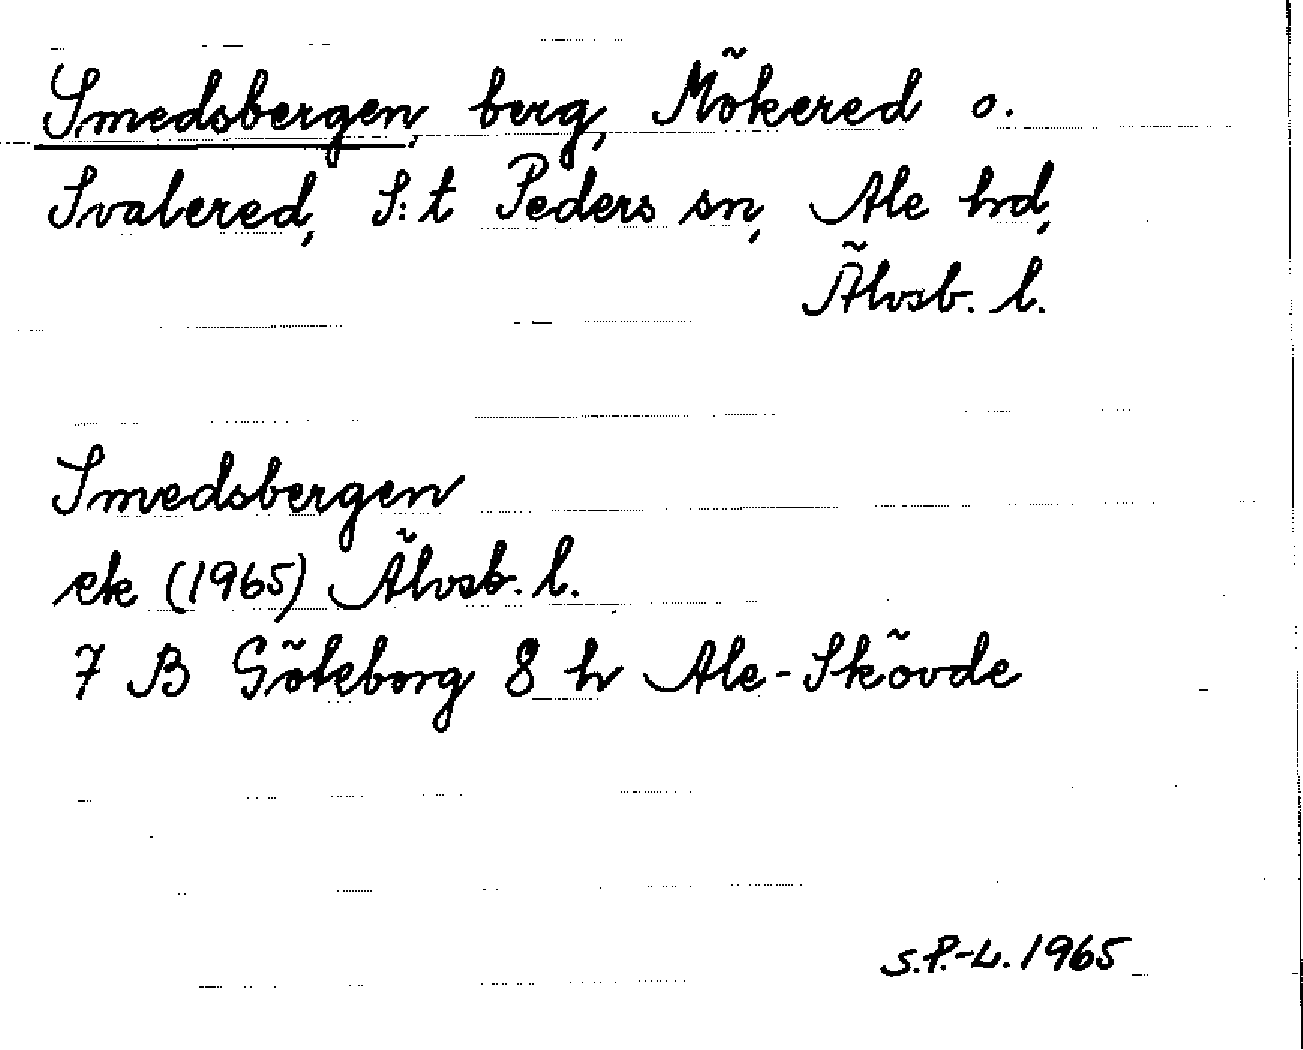 Smedsbergen, berg, Mökered o.
Svalered, S:t Peders sn, Ale hd,
Älvsb. l.
Smedsbergen
ek (1965) Älvsb. l.
7 B Göteborg 8 h Ale-Skövde
S.P.-L. 1965